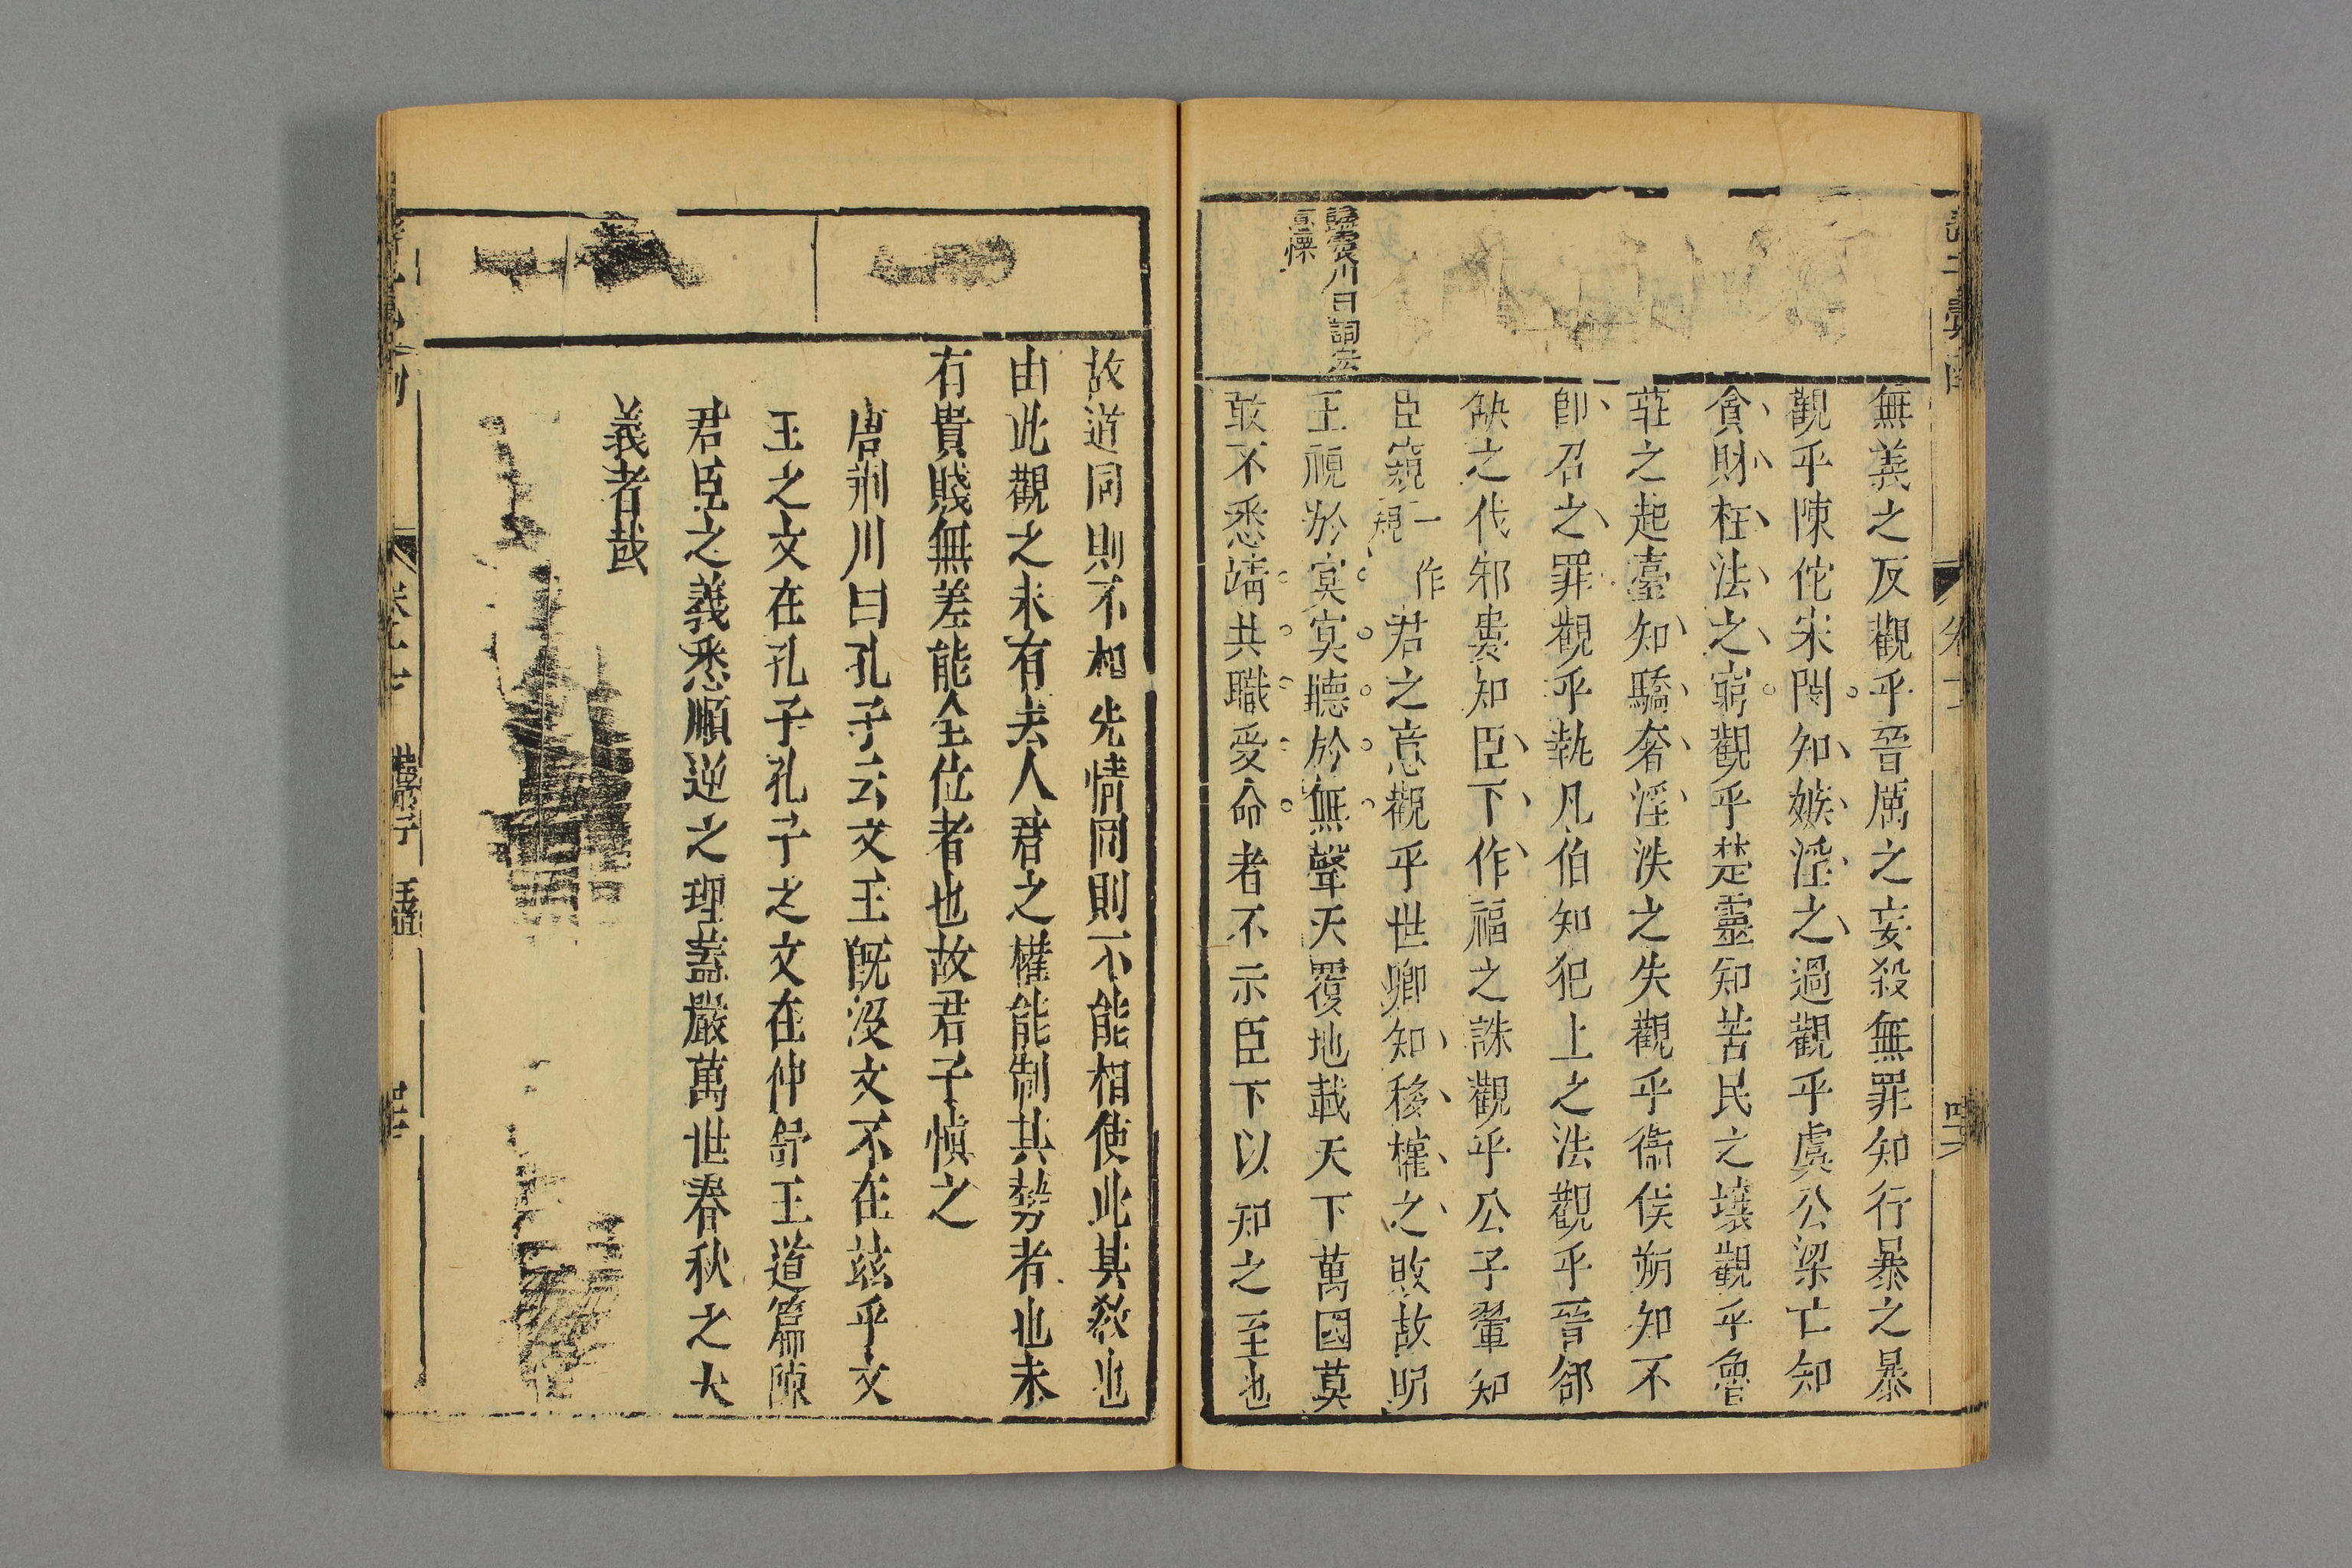 無義之反觀乎晉厲之妄殺無罪知行暴之暴
觀乎陳佗宋閔知嫉淫之過觀乎虞公梁亡知
貪財枉法之窮觀乎楚靈知苦民之壤觀乎魯
莊之起臺知驕奢淫泆之失觀乎衞侯朔知不
卽召之罪觀乎執凡伯知犯上之法觀乎晉郤
缺之伐邾婁知臣下作福之誅觀乎公子翬知
臣窺一作規君之意觀乎世卿知移權之敗故明
王視於冥冥聽於無聲天覆地載天下萬國莫
敢不悉靖共職受命者不示臣下以知之至也
震川曰詞宏
意懍
故道同則不相先情同則不能相使此其敎也
由此觀之未有去人君之權能制其勢者也未
有貴賤無差能全位者也故君子愼之
唐荊川曰孔子云文王旣沒文不在玆乎文
王之文在孔子孔子之文在仲舒王道篇陳
君臣之義悉順逆之理蓋嚴萬世春秋之大
義者哉